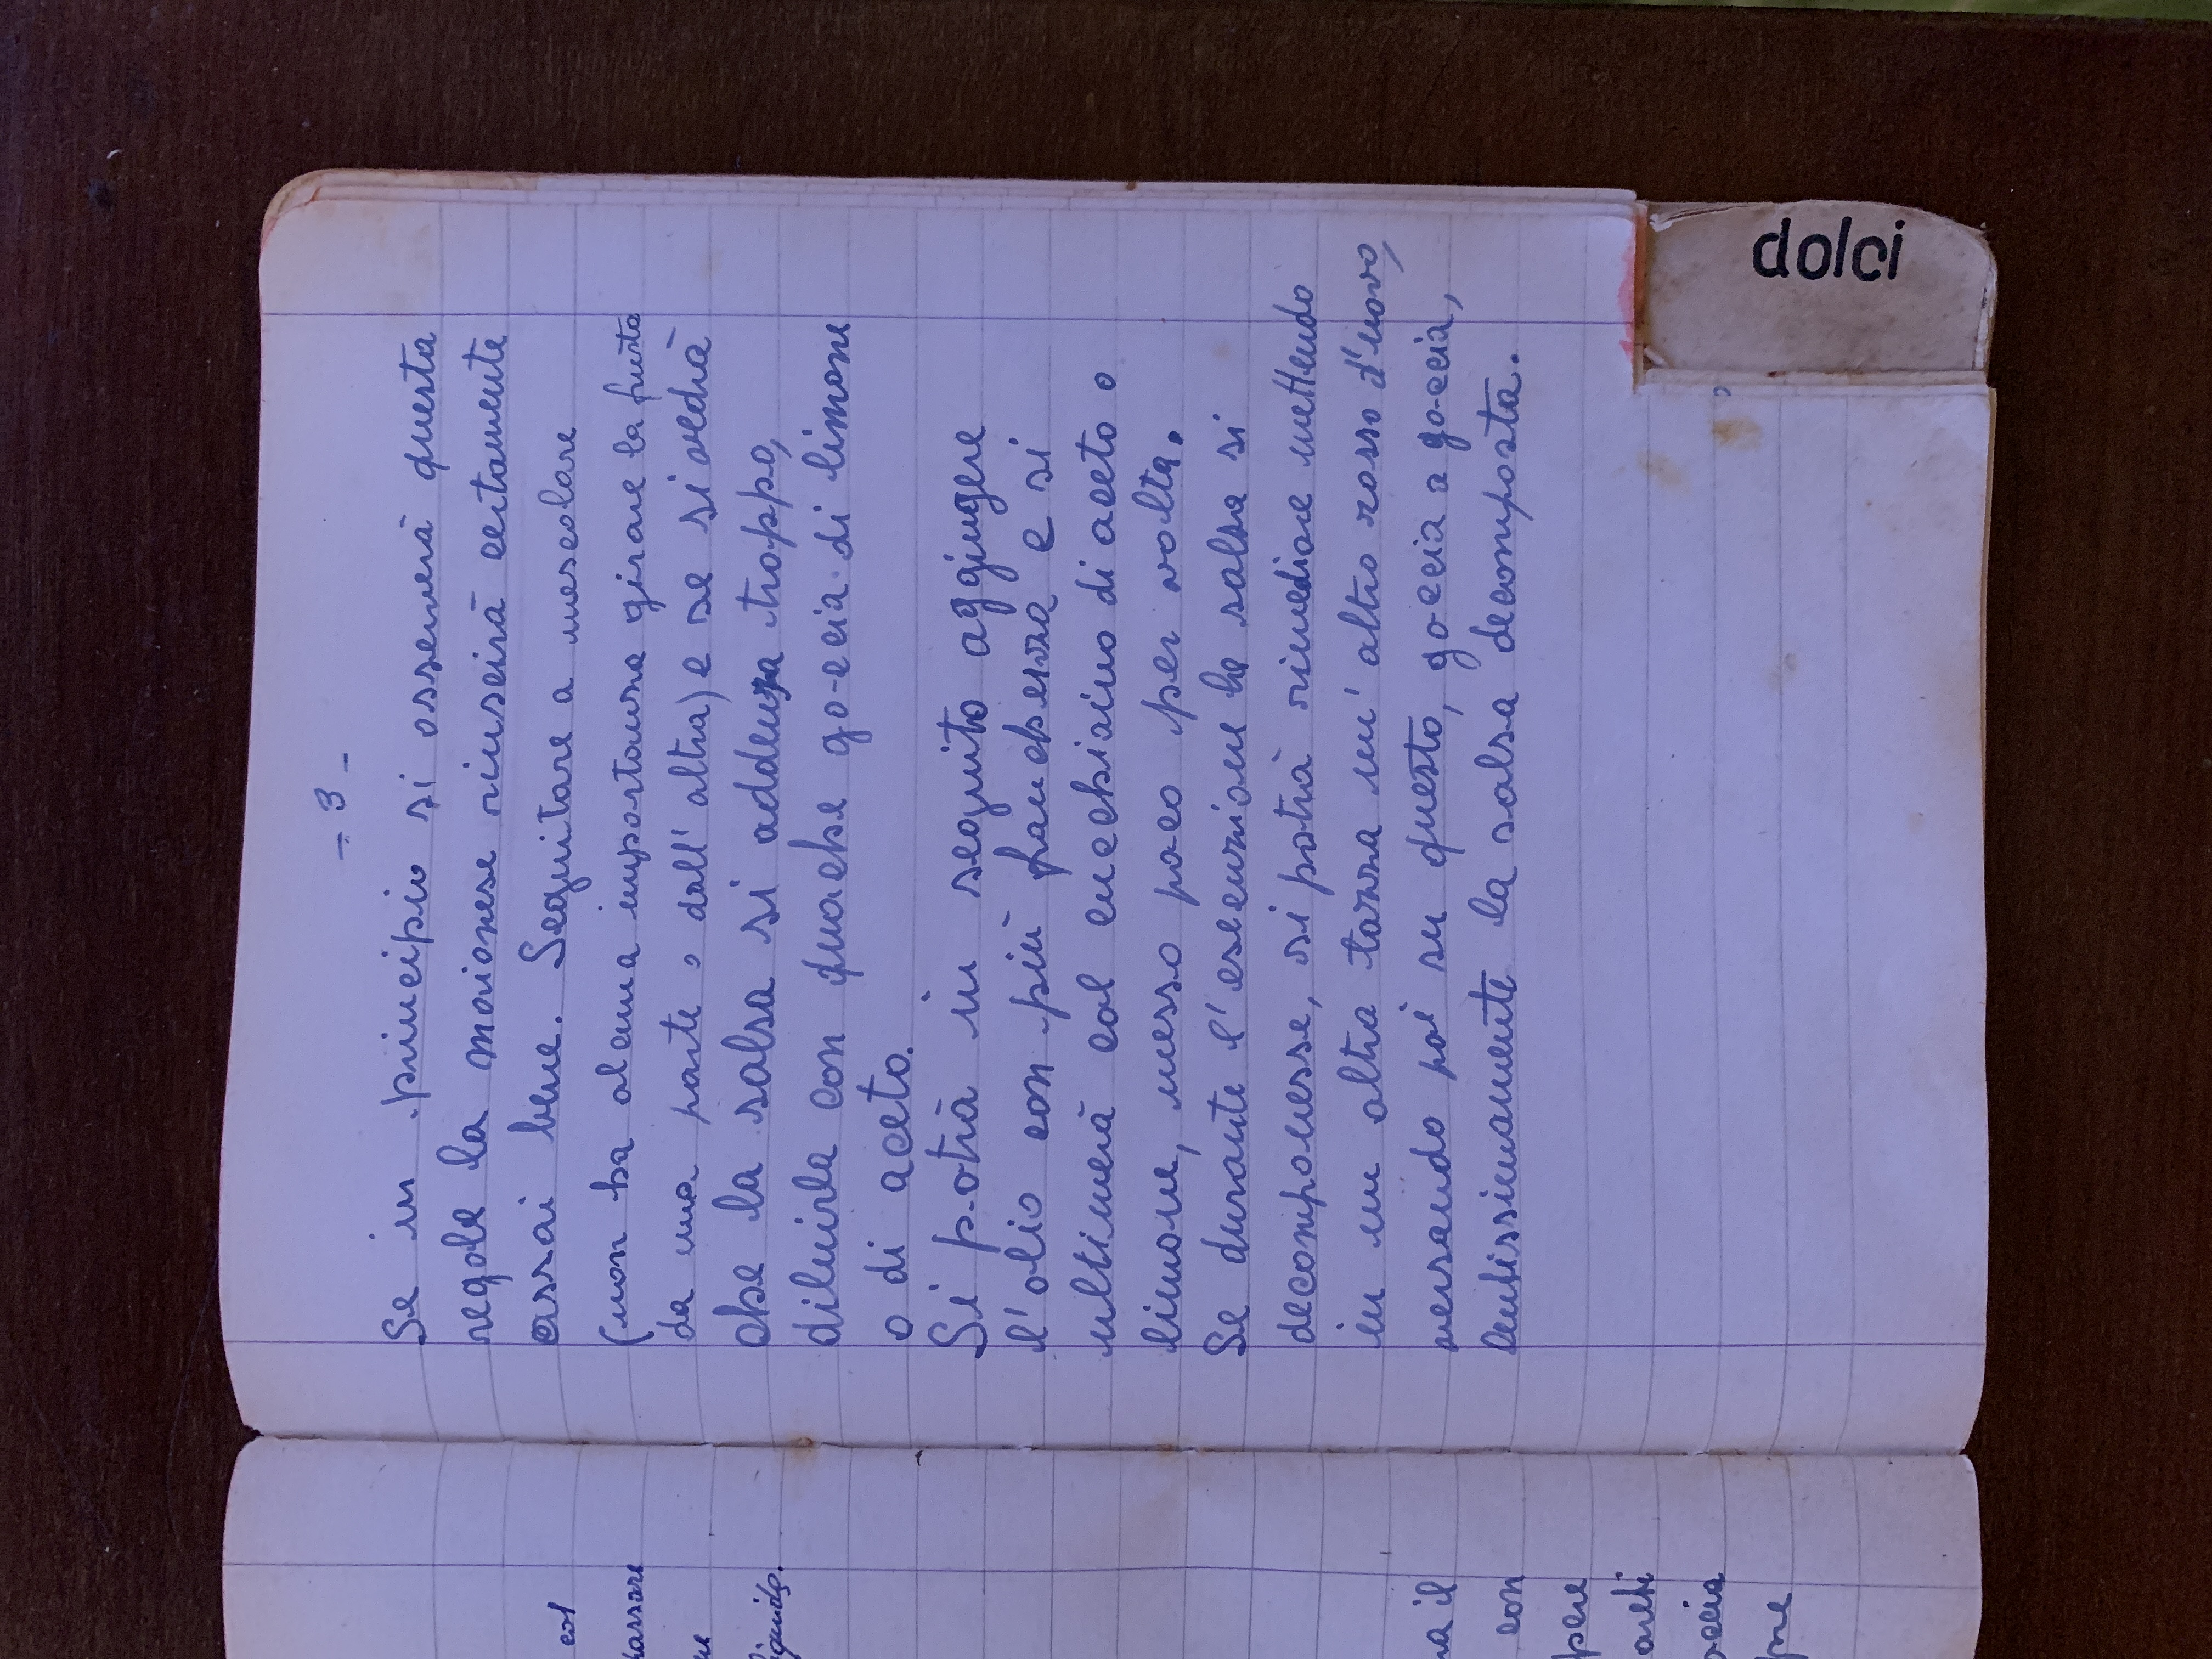 col
passare
liquido.
na il
con
pere
areti
occia
pre
- 3 -
Se in principio si osserverà questa
regola la maionese riuscirà certamente
assai bene. Seguitare a mescolare
(non ha alcuna importanza girare la frusta
da una parte o dall'altra) e se si vedrà
che la salsa si addenza troppo,
diluirla con quache goccia di limone
o di aceto.
Si potrà in seguito aggiugere
l'olio con più franchezza e si
ultimerà col cucchiaino di aceto o
limone, messo poco per volta.
Se durante l'esecuzione la salsa si
decomponesse, si potrà rimediare mettendo
in un altra tazza un' altro rosso d'uovo,
versando poi su questo, goccia a goccia,
lentissimamente la salsa decomposta.
dolci